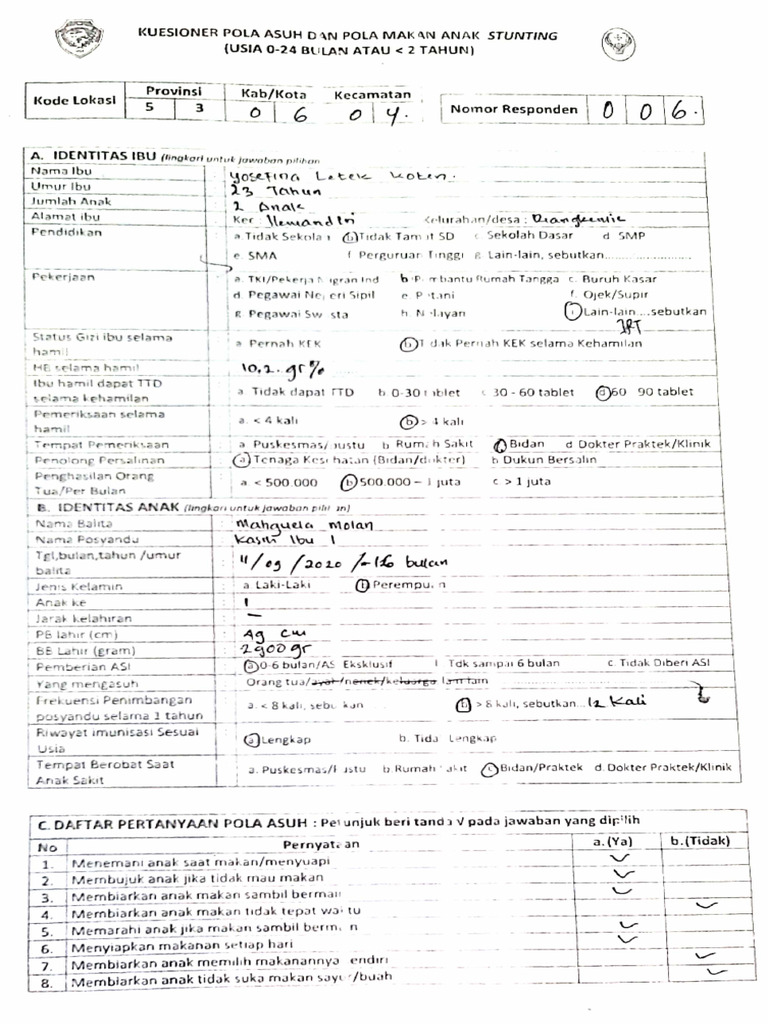 KUESIONER POLA ASUH DAN POLA MAKAN ANAK STUNTING
(USIA 0-24 BULAN ATAU < 2 TAHUN)
Kode Lokasi Provinsi Kab/Kota Kecamatan Nomor Responden 0 0 6.
5 3 0 6 0 4.
A. IDENTITAS IBU (lingkari untuk jawaban pilihan
Nama Ibu : Yosefina Letek Koten.
Umur Ibu : 23 Tahun
Jumlah Anak : 2 Anak
Alamat ibu : Kec : Ilemandiri Kelurahan/desa :
Pendidikan : a. Tidak Sekola b Tidak Tam t SD c Sekolah Dasar d SMP
e. SMA f Perguruan Tinggi g Lain-lain, sebutkan
Pekerjaan : a. TKI/Pekerja Migran Ind b Pembantu Rumah Tangga c. Buruh Kasar
d. Pegawai Negeri Sipil e Petani f. Ojek/Supir
g Pegawai Sw sta h. Nelayan i Lain-lain....sebutkan
IRT
Status Gizi ibu selama hamil : a Pernah KEK b Tidak Pernah KEK selama Kehamilan
HB selama hamil : 10,2. gr%
Ibu hamil dapat TTD selama kehamilan : a Tidak dapat TTD b 0-30 tablet c 30 - 60 tablet d 60 90 tablet
Pemeriksaan selama hamil : a. < 4 kali b > 4 kali
Tempat Pemeriksaan : a Puskesmas/Pustu b Rumah Sakit c Bidan d Dokter Praktek/Klinik
Penolong Persalinan : a Tenaga Kesehatan (Bidan/dokter) b Dukun Bersalin
Penghasilan Orang Tua/Per Bulan : a < 500.000 b 500.000 – 1 juta c > 1 juta
B. IDENTITAS ANAK (lingkari untuk jawaban pilihan)
Nama Balita : Molan
Nama Posyandu : Kasih Ibu 1
Tgl,bulan,tahun /umur balita : 11/09/2020 /-16 bulan
Jenis Kelamin : a Laki-Laki b Perempuan
Anak ke : 1
Jarak kelahiran : –
PB lahir (cm) : 49 cm
BB Lahir (gram) : 2900 gr
Pemberian ASI : a 0-6 bulan/ASI Eksklusif b Tdk sampai 6 bulan c. Tidak Diberi ASI
Yang mengasuh : Orang tua/ayah/nenek/keluarga lain lain
Frekuensi Penimbangan posyandu selama 1 tahun : a. < 8 kali, sebutkan b > 8 kali, sebutkan...12 Kali
Riwayat Imunisasi Sesuai Usia : a Lengkap b. Tidak Lengkap
Tempat Berobat Saat Anak Sakit : a. Puskesmas/Pustu b. Rumah Sakit c Bidan/Praktek d. Dokter Praktek/Klinik
C. DAFTAR PERTANYAAN POLA ASUH : Petunjuk beri tanda V pada jawaban yang dipilih
No Pernyataan a. (Ya) b. (Tidak)
1. Menemani anak saat makan/menyuapi ✓
2. Membujuk anak jika tidak mau makan ✓
3. Membiarkan anak makan sambil bermain ✓
4. Membiarkan anak makan tidak tepat waktu ✓
5. Memarahi anak jika makan sambil bermain ✓
6. Menyiapkan makanan setiap hari ✓
7. Membiarkan anak memilih makanannya sendiri ✓
8. Membiarkan anak tidak suka makan sayur/buah ✓